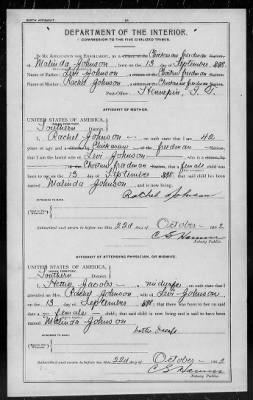 BIRTH AFFIDAVIT.
DEPARTMENT OF THE INTERIOR.
COMMISSION TO THE FIVE CIVILIZED TRIBES.
IN RE APPLICATION FOR ENROLLMENT, as a citizen of the Chickasaw freedman
of Malinda Johnson, born on the 13 day of September
Name of Father: Levi Johnson a citizen of the Choctaw freedman
Name of Mother: Rachel Johnson a citizen of the Chickasaw freedman
Post-Office: Hennepin I. T.
AFFIDAVIT OF MOTHER.
UNITED STATES OF AMERICA,
INDIAN TERRITORY,
Southern District.
I, Rachel Johnson, on oath state that I am 42
years of age and a citizen of Chickasaw freedman
that I am the lawful wife of Levi Johnson, who is a
citizen of the Choctaw freedman that a female child was
born to me on the 13 day of September; that said child has been
named Malinda Johnson, and is now living.
Rachel Johnson
Subscribed and sworn to before me this 22d October 1902
Notary Public.
AFFIDAVIT OF ATTENDING PHYSICIAN, OR MIDWIFE.
UNITED STATES OF AMERICA,
INDIAN TERRITORY,
Southern District.
I, Hettie Jacobs, a midwife, on oath state that I
attended on Mrs. Rachel Johnson, wife of Levi Johnson
on the 13 day of September; that there was born to her on said
date a female child; that said child is now living and is said to have been
named Malinda Johnson
Subscribed and sworn to before me this 22d October 1902
Notary Public.